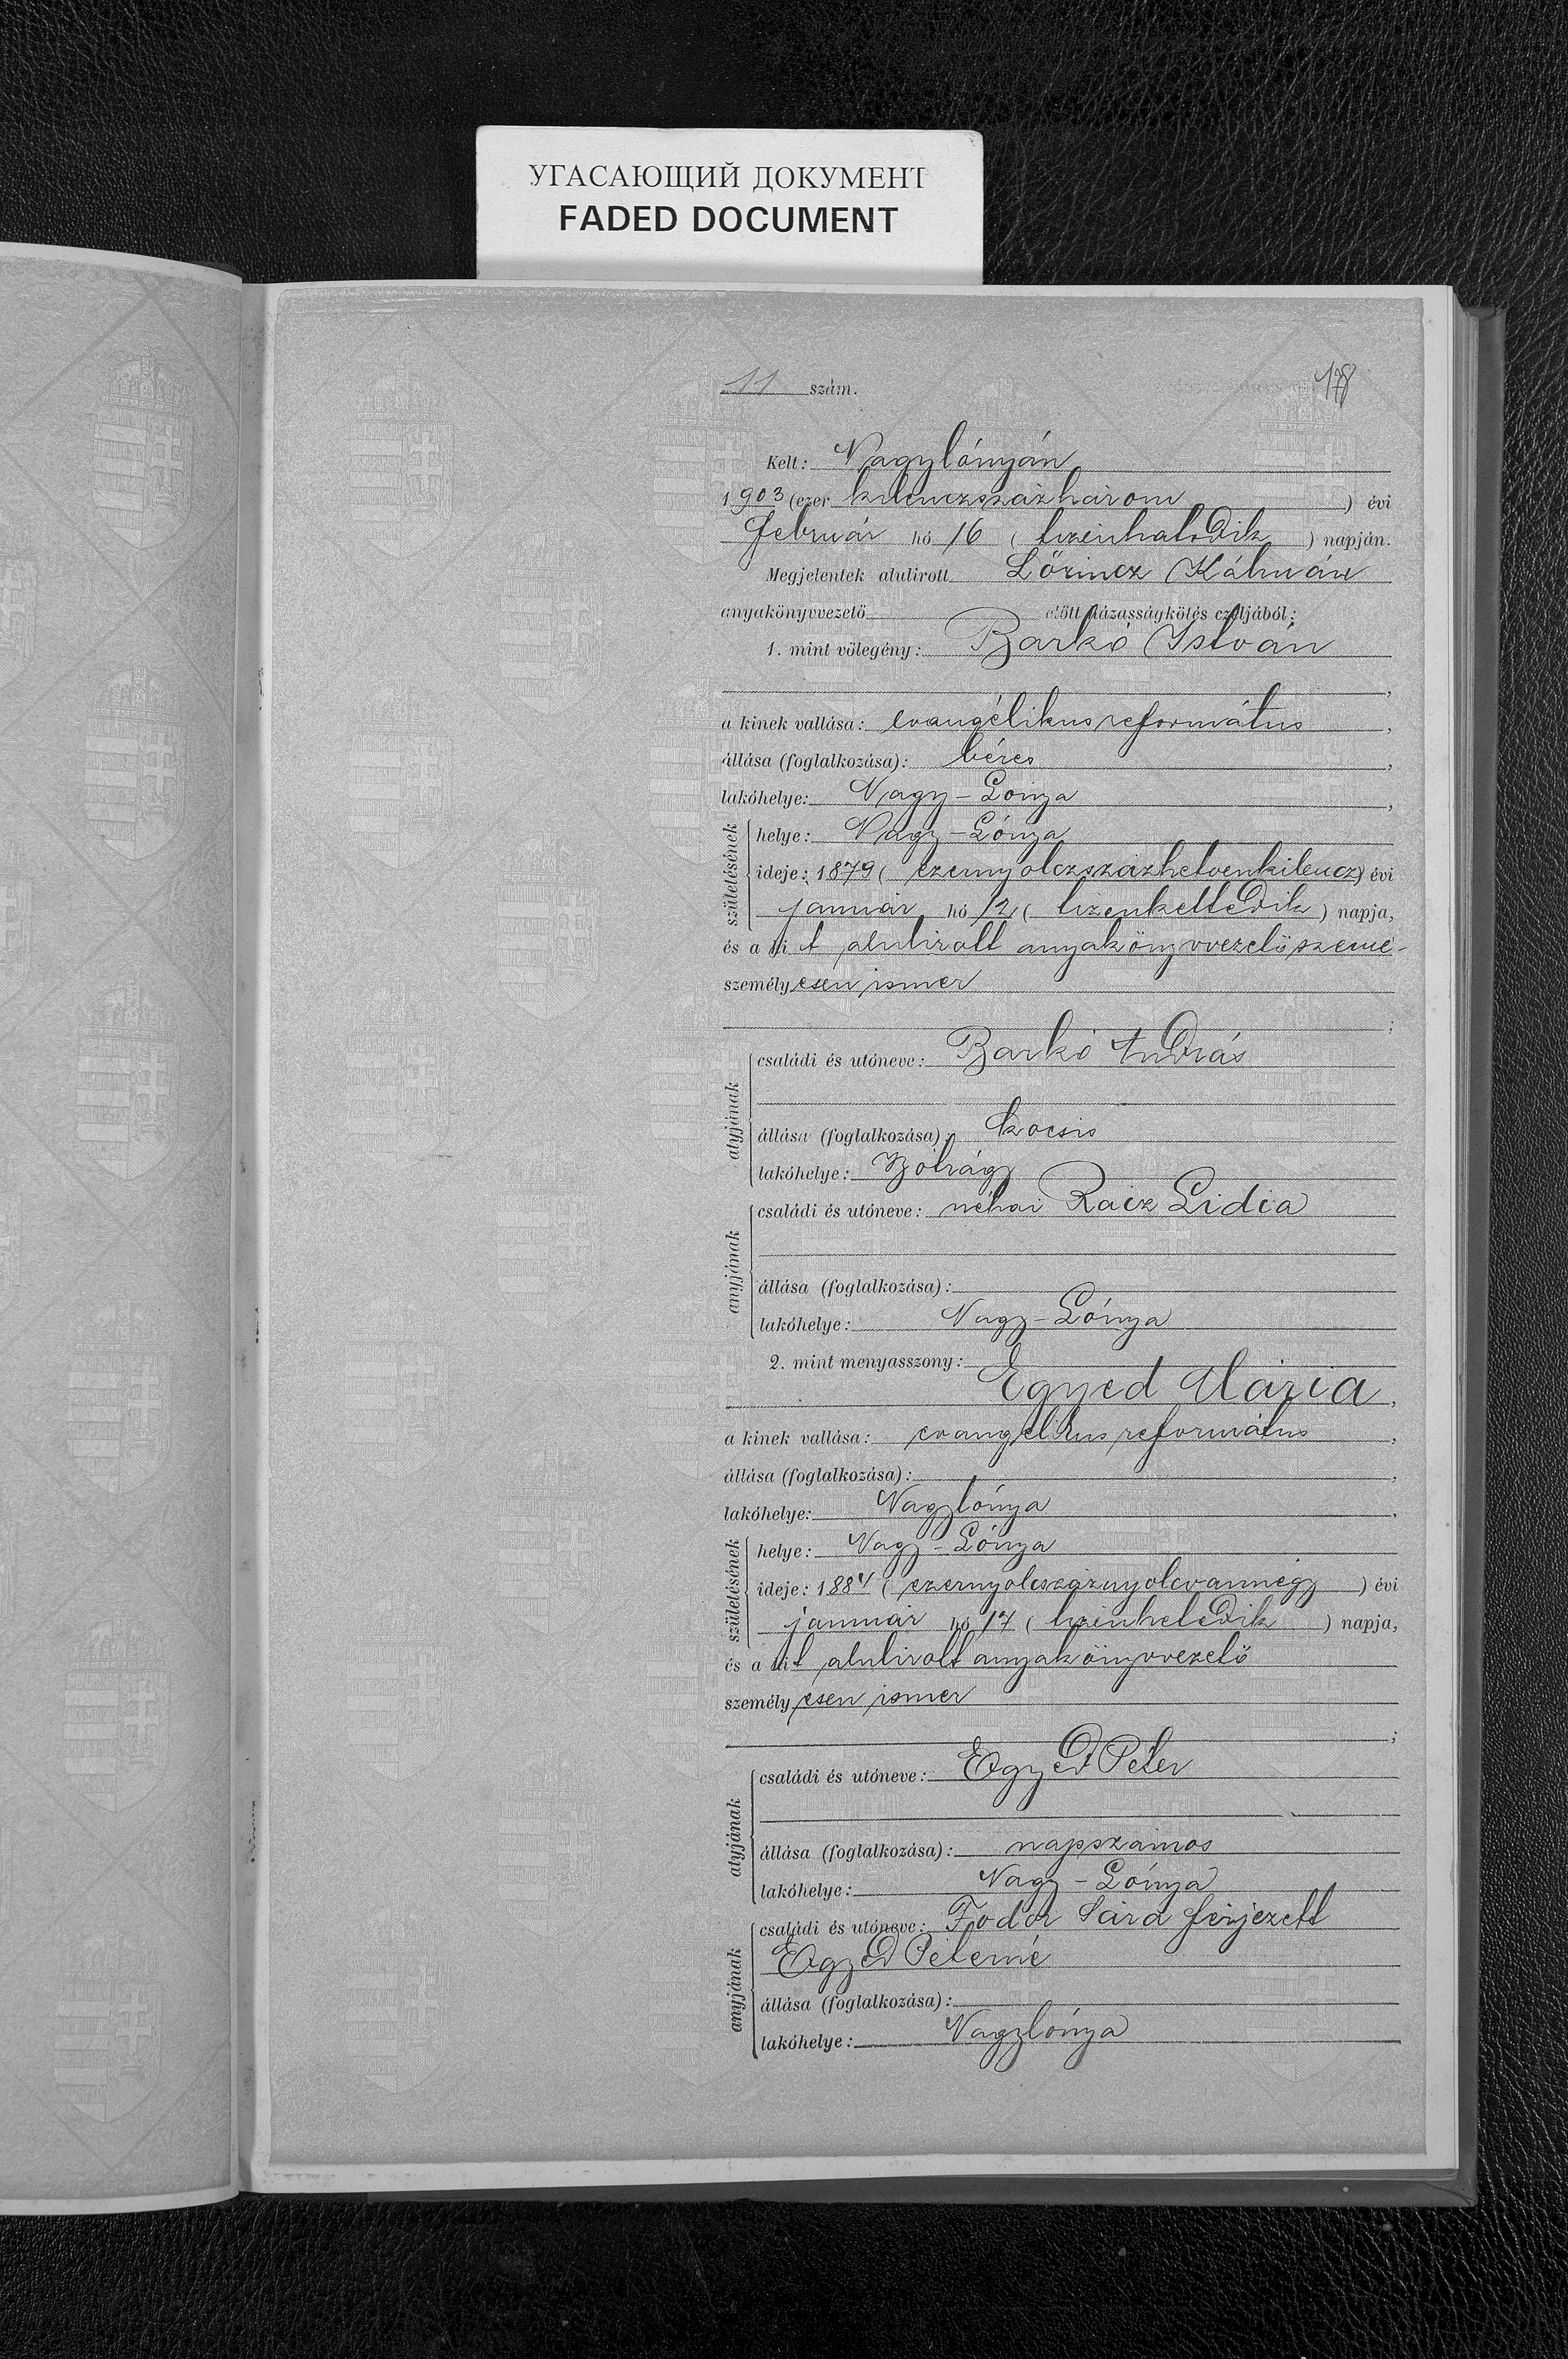 УГАСАЮЩИЙ ДОКУМЕНТ
FADED DOCUMENT
11 szám.
178
Kelt: Nagylónyán
1903 (ezer kilenczszázhárom) évi
február hó 16 (tizenhatodik) napján.
Megjelentek alulirott Lőrincz Kálmán
anyakönyvvezető előtt házasságkötés czéljából:
1. mint vőlegény: Barkó István
a kinek vallása: evangélikus református,
állása (foglalkozása): béres,
lakóhelye: Nagy-Lónya,
születésének
helye: Nagy-Lónya
ideje: 1879 (ezernyolczszázhetvenkilencz) évi
január hó 12 (tizenkettedik) napja,
és a kit alulirott anyakönyvvezető szemé-
személyesen ismer
;
atyjának
családi és utóneve: Barkó András
állása (foglalkozása): kocsis
lakóhelye:
anyjának
családi és utóneve: néhai Rácz Lidia
állása (foglalkozása):
lakóhelye: Nagy-Lónya
2. mint menyasszony:
Egyed Mária,
a kinek vallása: evangélikus református,
állása (foglalkozása):,
lakóhelye: Nagylónya,
születésének
helye: Nagy-Lónya
ideje: 1884 (ezernyolcszáznyolcvannégy) évi
január hó 17 (tizenhetedik) napja,
és a kit alulirott anyakönyvvezető
személyesen ismer
;
atyjának
családi és utóneve: Egyed Péter
állása (foglalkozása): napszámos
lakóhelye: Nagy-Lónya
anyjának
családi és utóneve: Fodor Sára férjezett
Egyed Péterné
állása (foglalkozása):
lakóhelye: Nagylónya